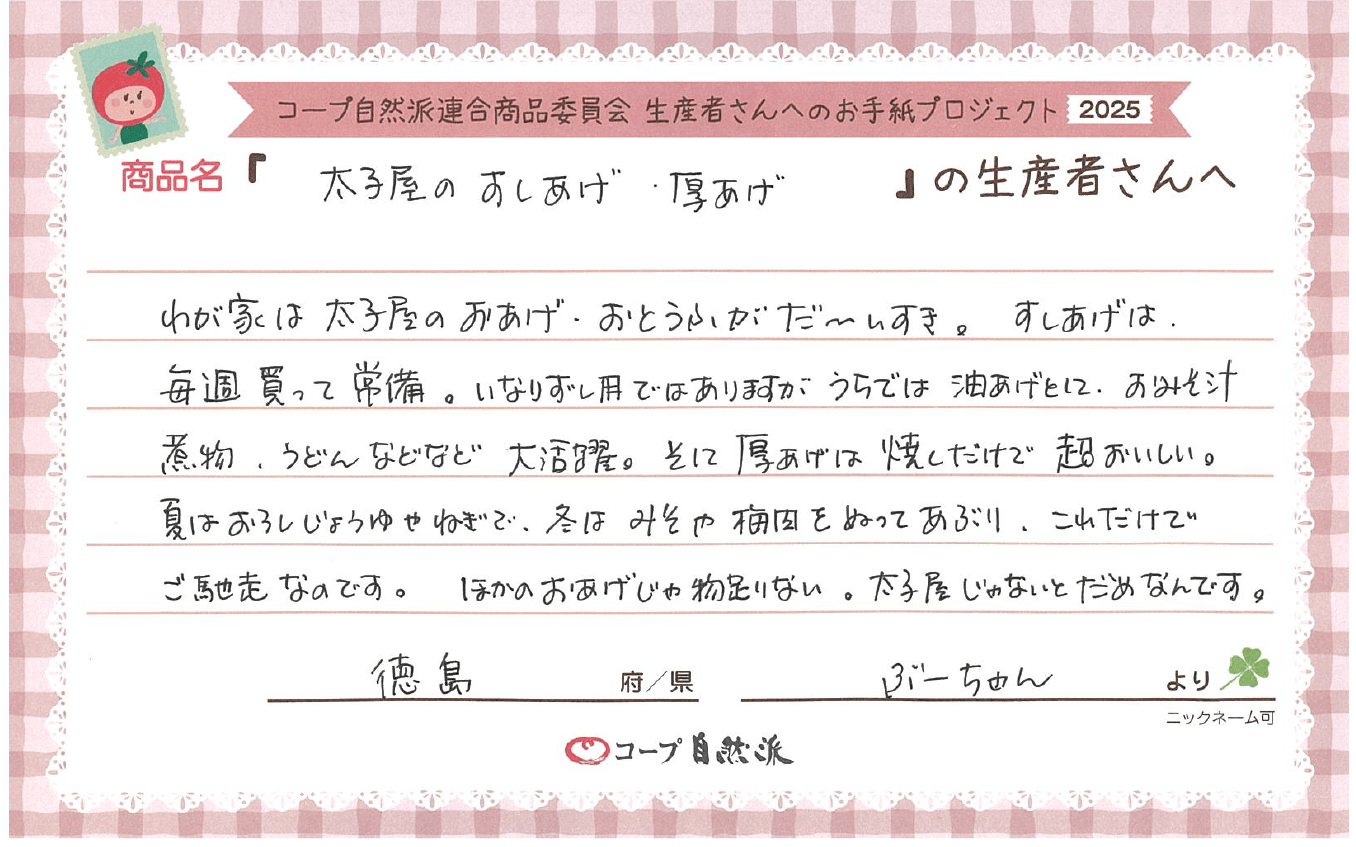 コープ自然派連合商品委員会 生産者さんへのお手紙プロジェクト 2025
商品名『太子屋の すしあげ・厚あげ』の生産者さんへ
わが家は 太子屋の おあげ・おとうふが だ〜いすき。 すしあげは、
毎週 買って 常備。いなりずし用ではありますが うちでは 油あげとして、おみそ汁
煮物、うどん などなど 大活躍。そして 厚あげは 焼しだけで 超おいしい。
夏は おろししょうゆ や ねぎで、冬は みそや 梅肉を ぬって あぶり、これだけで
ご馳走 なのです。 ほかの おあげじゃ 物足りない。太子屋 じゃないと だめなんです。
徳島 府/県 ぶーちゃん より
ニックネーム可
コープ自然派